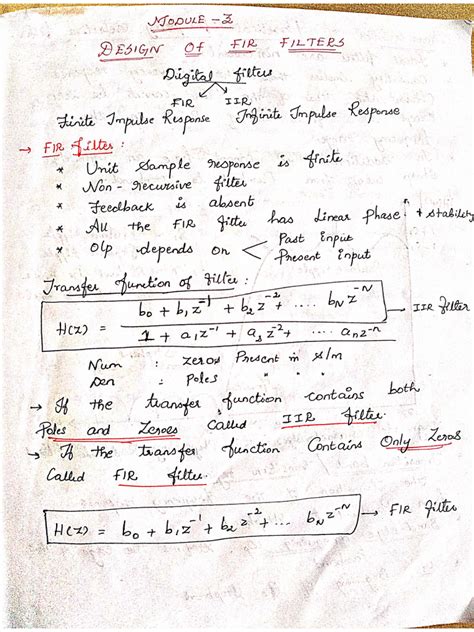 MODULE - 3
DESIGN OF FIR FILTERS
Digital filters
FIR IIR
Finite Impulse Response Infinite Impulse Response
→ FIR filter :
* Unit Sample response is finite
* Non - recursive filter
* Feedback is absent
* All the FIR filter has Linear phase & stability
* O/p depends on < Past input
Present input
Transfer function of filter :
H(z) = b₀ + b₁z⁻¹ + b₂z⁻² + .... b_N z^-N / 1 + a₁z⁻¹ + a₂z⁻² + .... a_n z^-n → IIR filter
Num : zeros Present in s/m
Den : Poles " "
→ If the transfer function contains both
Poles and Zeroes Called IIR filter.
→ If the transfer function Contains Only Zeros
Called FIR filter.
H(z) = b₀ + b₁z⁻¹ + b₂ z⁻² + ... b_N z^-N → FIR filter